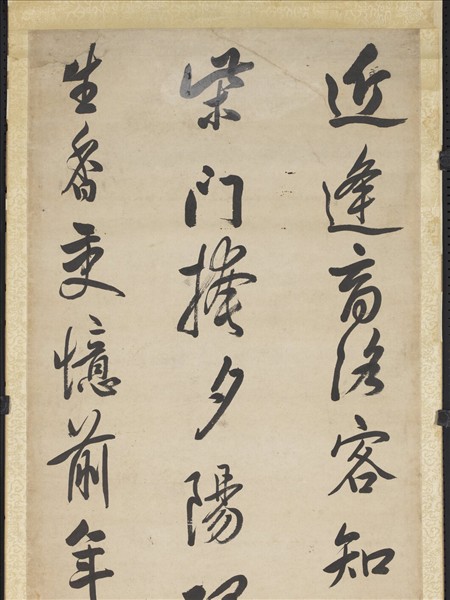 近逢商洛客知
柴門掩夕陽
生香更憶前年